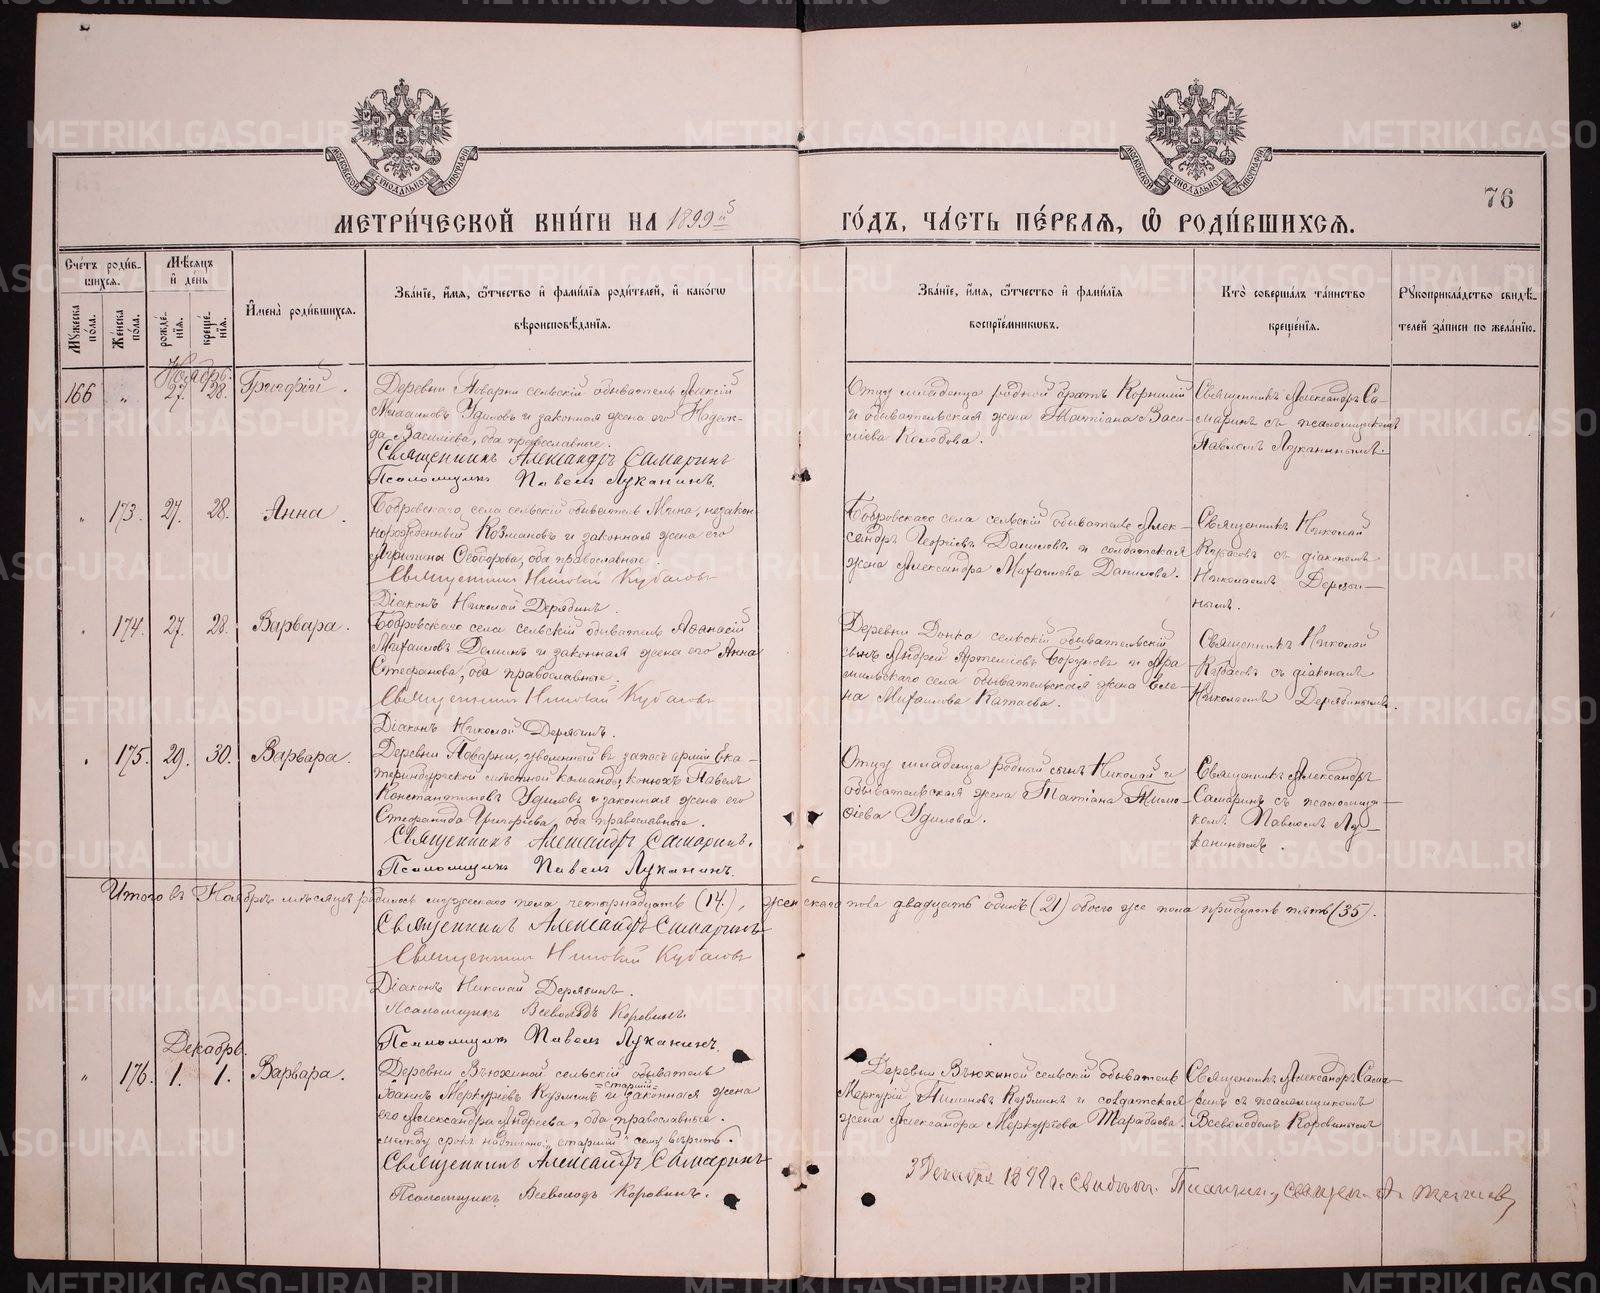 76
МЕТРИ́ЧЕСКОЙ КНИ́ГИ НА 1899й
ГО́ДЪ, ЧА́СТЬ ПЕ́РВАѦ, Ѡ҆ РОДИ́ВШИХСѦ.
Сче́тъ роди́в-
шихся.
Мужеска пола.
Же́нска по́ла.
Мѣ́сяцъ
и҆ де́нь
рожде́-
нїѧ.
креще́-
нїѧ.
И҆мена̀ роди́вшихся.
Зва́нїе, и҆́мѧ, ѻ҆́тчество и҆ фами́лїѧ роди́телей, и҆ како́гѡ
вѣроисповѣ́данїѧ.
Зва́нїе, и҆́мѧ, ѻ҆́тчество и҆ фами́лїѧ
воспрїе́мникѡвъ.
Кто̀ соверша́лъ та́инство
креще́нїѧ.
Рукоприкла́дство свидѣ́-
телей за́писи по жела́нїю.
Ноябрь.
166 „ 27. 28. Григорій.
Деревни Поварни сельскій обыватель Алексій
Михаиловъ Удиловъ и законная жена его Надеж-
да Васильева, оба православные.
Священникъ Александръ Самаринъ
Псаломщикъ Павелъ Луканинъ.
Отцу младенца родной братъ Корнилій
и обывательская жена Татіана Васи-
ліева Колобова.
Священникъ Александръ Са-
маринъ съ псаломщикомъ
Павломъ Луканинымъ.
„ 173. 27. 28. Анна.
Бобровскаго села сельскій обыватель Мина, незакон-
норожденный Козмановъ и законная жена его
Агрипина Ѳеодорова, оба православные.
Священникъ Николай Кубасовъ
Діаконъ Николай Дерябинъ.
Бобровскаго села сельскій обыватель Алек-
сандръ Георгіевъ Даниловъ и солдатская
жена Александра Михаилова Данилова.
Священникъ Николай
Кубасовъ съ діакономъ
Николаемъ Деряби-
нымъ.
„ 174. 27. 28. Варвара.
Бобровскаго села сельскій обыватель Аѳанасій
Михаиловъ Деминъ и законная жена его Анна
Стефанова, оба православные.
Священникъ Николай Кубасовъ
Діаконъ Николай Дерябинъ.
Деревни сельскій обывательскій
сынъ Андрей Артеміевъ и Ара-
мильскаго села обывательская жена Еле-
на Михаилова Катаева.
Священникъ Николай
Кубасовъ съ діакономъ
Николаемъ Дерябинымъ.
„ 175. 29. 30. Варвара.
Деревни Поварни, уволенный въ запасъ арміи Ека-
теринбургской мѣстной команды, конюхъ Павелъ
Константиновъ Удиловъ и законная жена его
Стефанида Григорьева, оба православные.
Священникъ Александръ Самаринъ.
Псаломщикъ Павелъ Луканинъ.
Отцу младенца родный сынъ Николай и
обывательская жена Татіана Тимо-
ѳіева Удилова.
Священникъ Александръ
Самаринъ съ псаломщи-
комъ Павломъ Лу-
канинымъ.
Итого въ Ноябрѣ мѣсяцѣ родилось мужескаго пола четырнадцать (14.), женскаго пола двадцать одинъ (21) обоего же пола тридцать пять (35).
Священникъ Александръ Самаринъ
Священникъ Николай Кубасовъ
Діаконъ Николай Дерябинъ.
Псаломщикъ Всеволодъ Коровинъ.
Псаломщикъ Павелъ Луканинъ.
Декабрь.
„ 176. 1. 1. Варвара.
Деревни Вьюхиной сельскій обыватель
=старшій=
Іоаннъ Меркуріевъ Кузминъ и законная жена
его Александра Андреева, оба православные.
между срокъ надписано: „старшій“ сему вѣрить.
Священникъ Александръ Самаринъ
Псаломщикъ Всеволодъ Коровинъ.
Деревни Вьюхиной сельскій обыватель
Меркурій Пименовъ Кузминъ и солдатская
жена Александра Меркурьева Тарабаева.
Священникъ Александръ Сама-
ринъ съ псаломщикомъ
Всеволодомъ Коровинымъ
3 Декабря 1899 г.